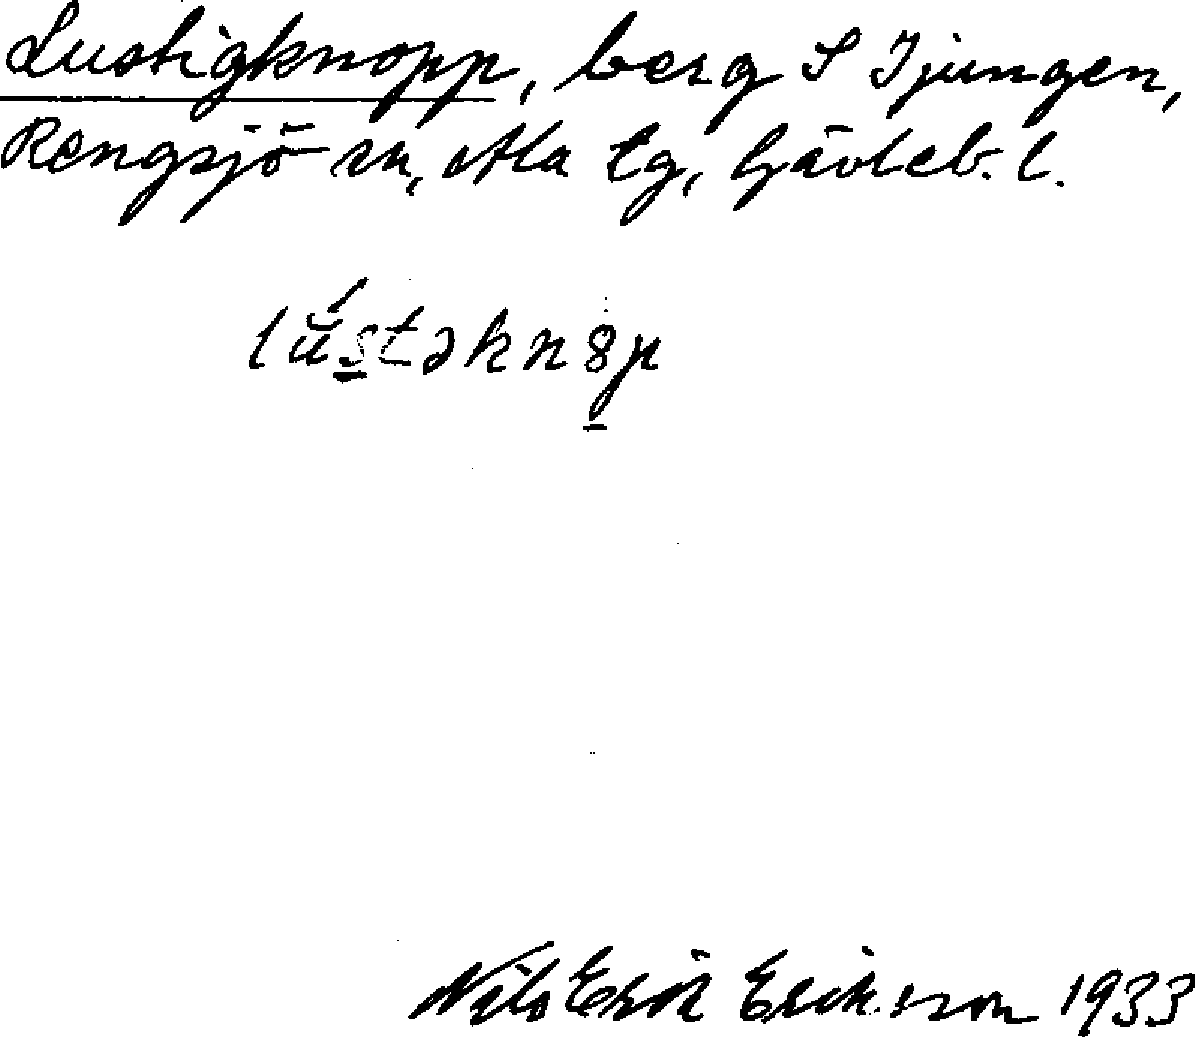 Lustigknopp, berg S Tjungen,
Rengsjö sn, Ala tg, Gävleb. l.
lústəkn8p
Nils Erik Eriksson 1933